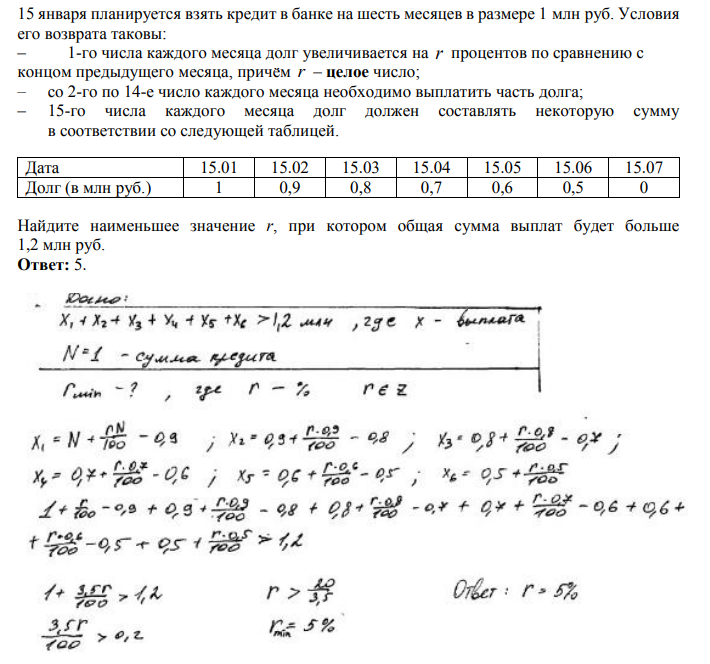 15 января планируется взять кредит в банке на шесть месяцев в размере 1 млн руб. Условия
его возврата таковы:
– 1-го числа каждого месяца долг увеличивается на r процентов по сравнению с
концом предыдущего месяца, причём r – целое число;
– со 2-го по 14-е число каждого месяца необходимо выплатить часть долга;
– 15-го числа каждого месяца долг должен составлять некоторую сумму
в соответствии со следующей таблицей.
Дата 15.01 15.02 15.03 15.04 15.05 15.06 15.07
Долг (в млн руб.) 1 0,9 0,8 0,7 0,6 0,5 0
Найдите наименьшее значение r, при котором общая сумма выплат будет больше
1,2 млн руб.
Ответ: 5.
Дано:
x₁ + x₂ + x₃ + x₄ + x₅ + x₆ > 1,2 млн , где x - выплата
N=1 - сумма кредита
r min - ? , где r - % r ∈ Z
x₁ = N + rN/100 - 0,9 ; x₂ = 0,9 + r·0,9/100 - 0,8 ; x₃ = 0,8 + r·0,8/100 - 0,7 ;
x₄ = 0,7 + r·0,7/100 - 0,6 ; x₅ = 0,6 + r·0,6/100 - 0,5 ; x₆ = 0,5 + r·0,5/100
1 + r/100 - 0,9 + 0,9 + r·0,9/100 - 0,8 + 0,8 + r·0,8/100 - 0,7 + 0,7 + r·0,7/100 - 0,6 + 0,6 +
+ r·0,6/100 - 0,5 + 0,5 + r·0,5/100 > 1,2
1 + 3,5r/100 > 1,2 r > 20/3,5 Ответ : r = 5%
3,5r/100 > 0,2 r min = 5%